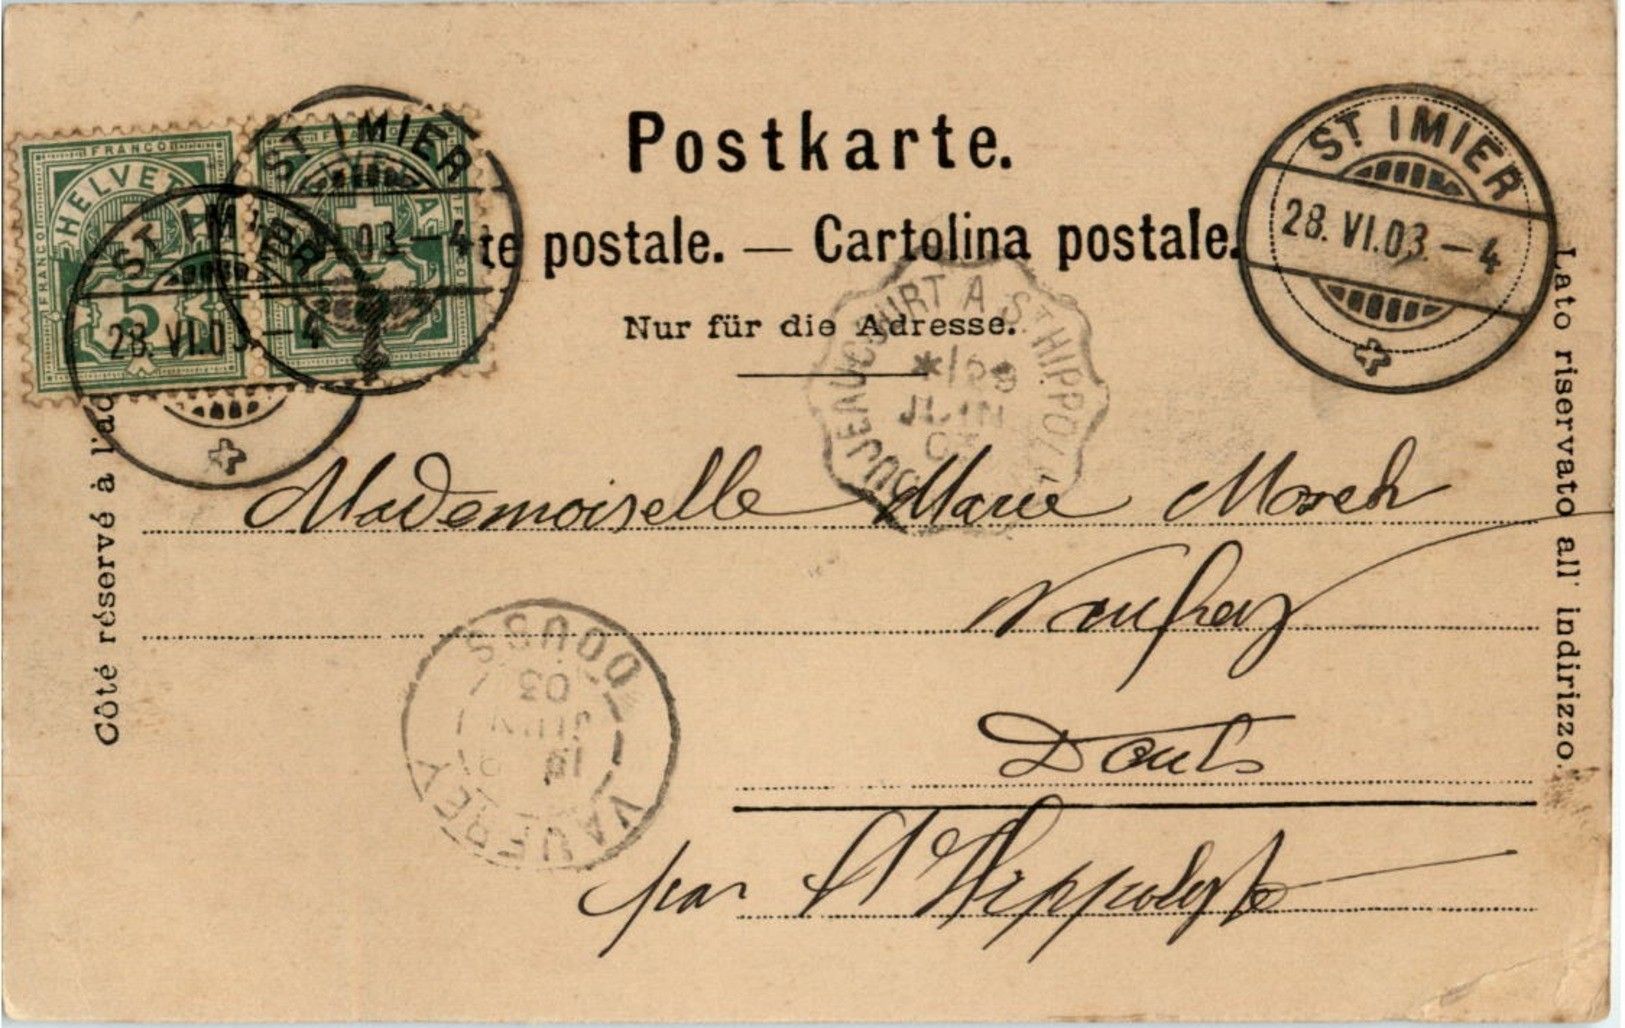 Postkarte.
te postale. — Cartolina postale.
Nur für die Adresse.
FRANCO
FRANCO
HELVETIA
5
ST IMIER
28. VI. 03 – 4
HELVETIA
ST IMIER
03 – 4
ST IMIER
28. VI. 03 – 4
JEAUCOURT A ST HIPPOLY
JUIN
03
Côté réservé à l'ad
Lato riservato all' indirizzo.
Mademoiselle Marie
Vaufrey
Doubs
par St Hippolyte
VAUFREY
DOUBS
JUIN
03